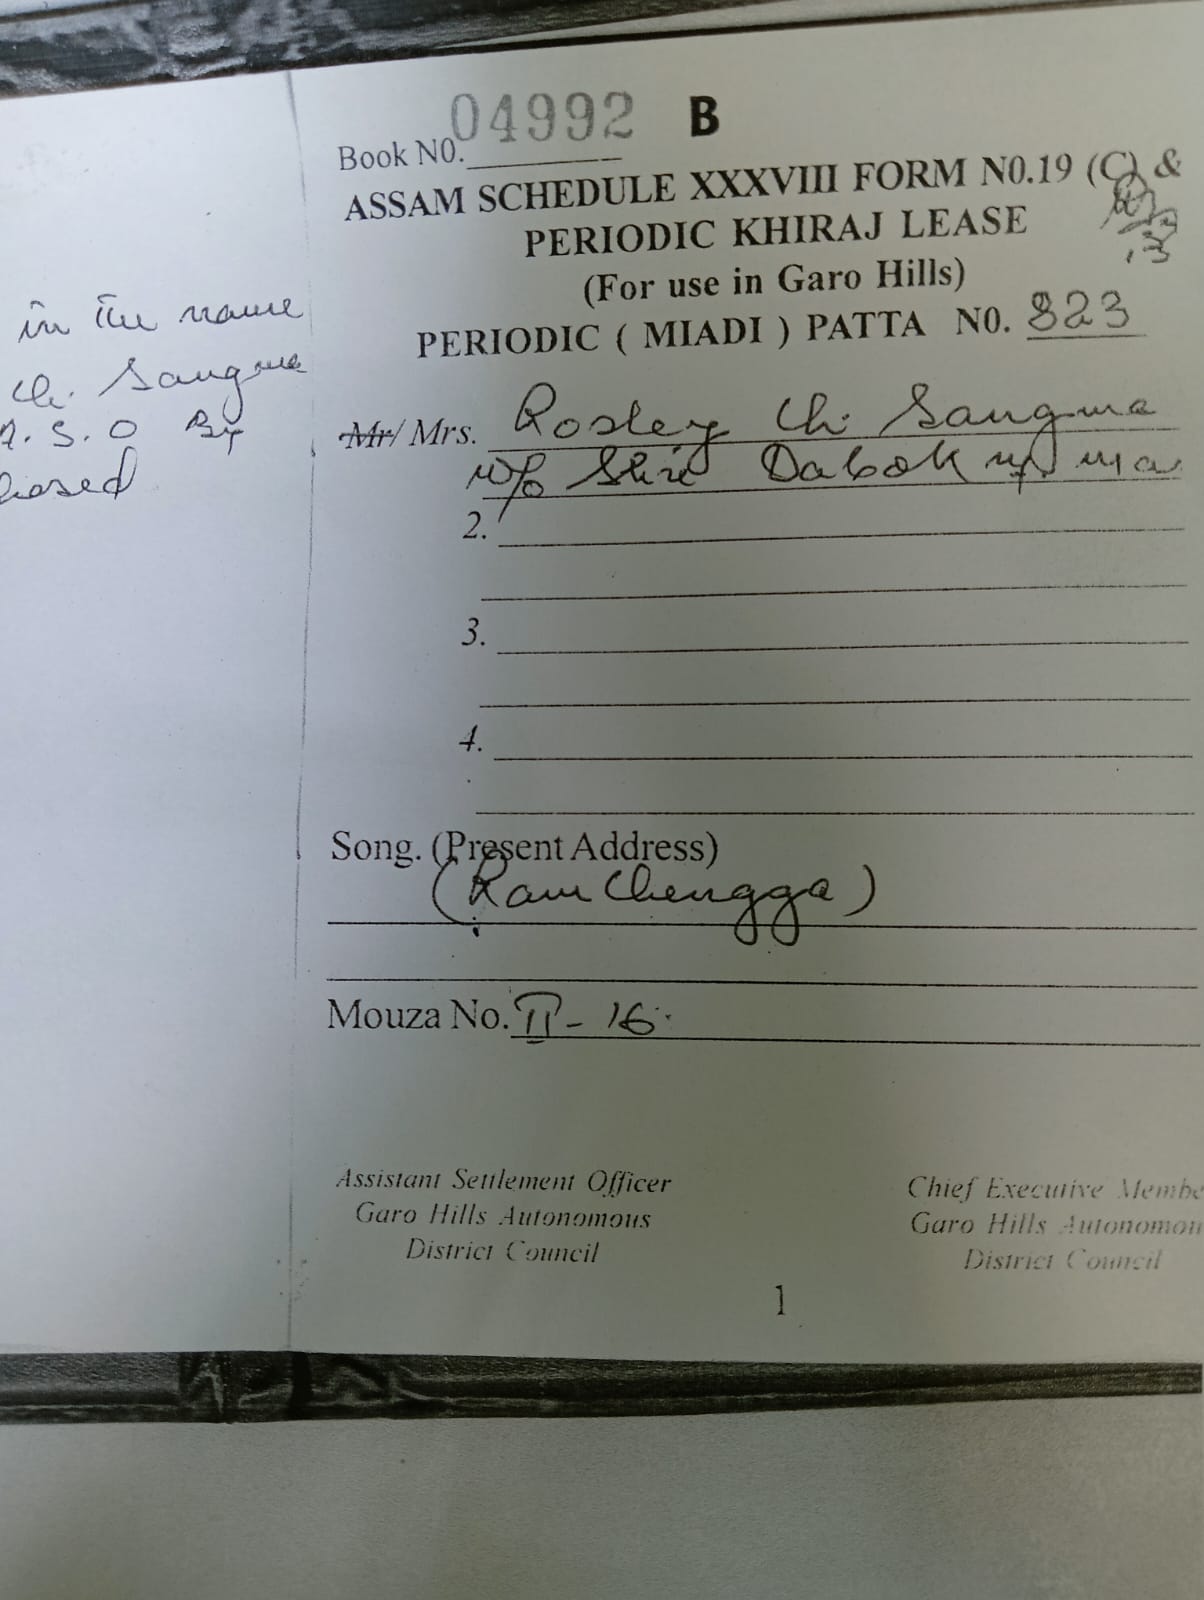 in the name
Ch. Sangma
A.S.O By
Book N0. 04992 B
ASSAM SCHEDULE XXXVIII FORM N0.19 (C) &
PERIODIC KHIRAJ LEASE
(For use in Garo Hills)
PERIODIC ( MIADI ) PATTA N0. 823
Mr/ Mrs. Rosley Ch. Sangma
w/o Shri Dabok
2.
3.
4.
Song. (Present Address)
(Ram Chengga)
Mouza No. II - 16
Assistant Settlement Officer
Garo Hills Autonomous
District Council
Chief Executive Membe
Garo Hills Autonomou
District Council
1